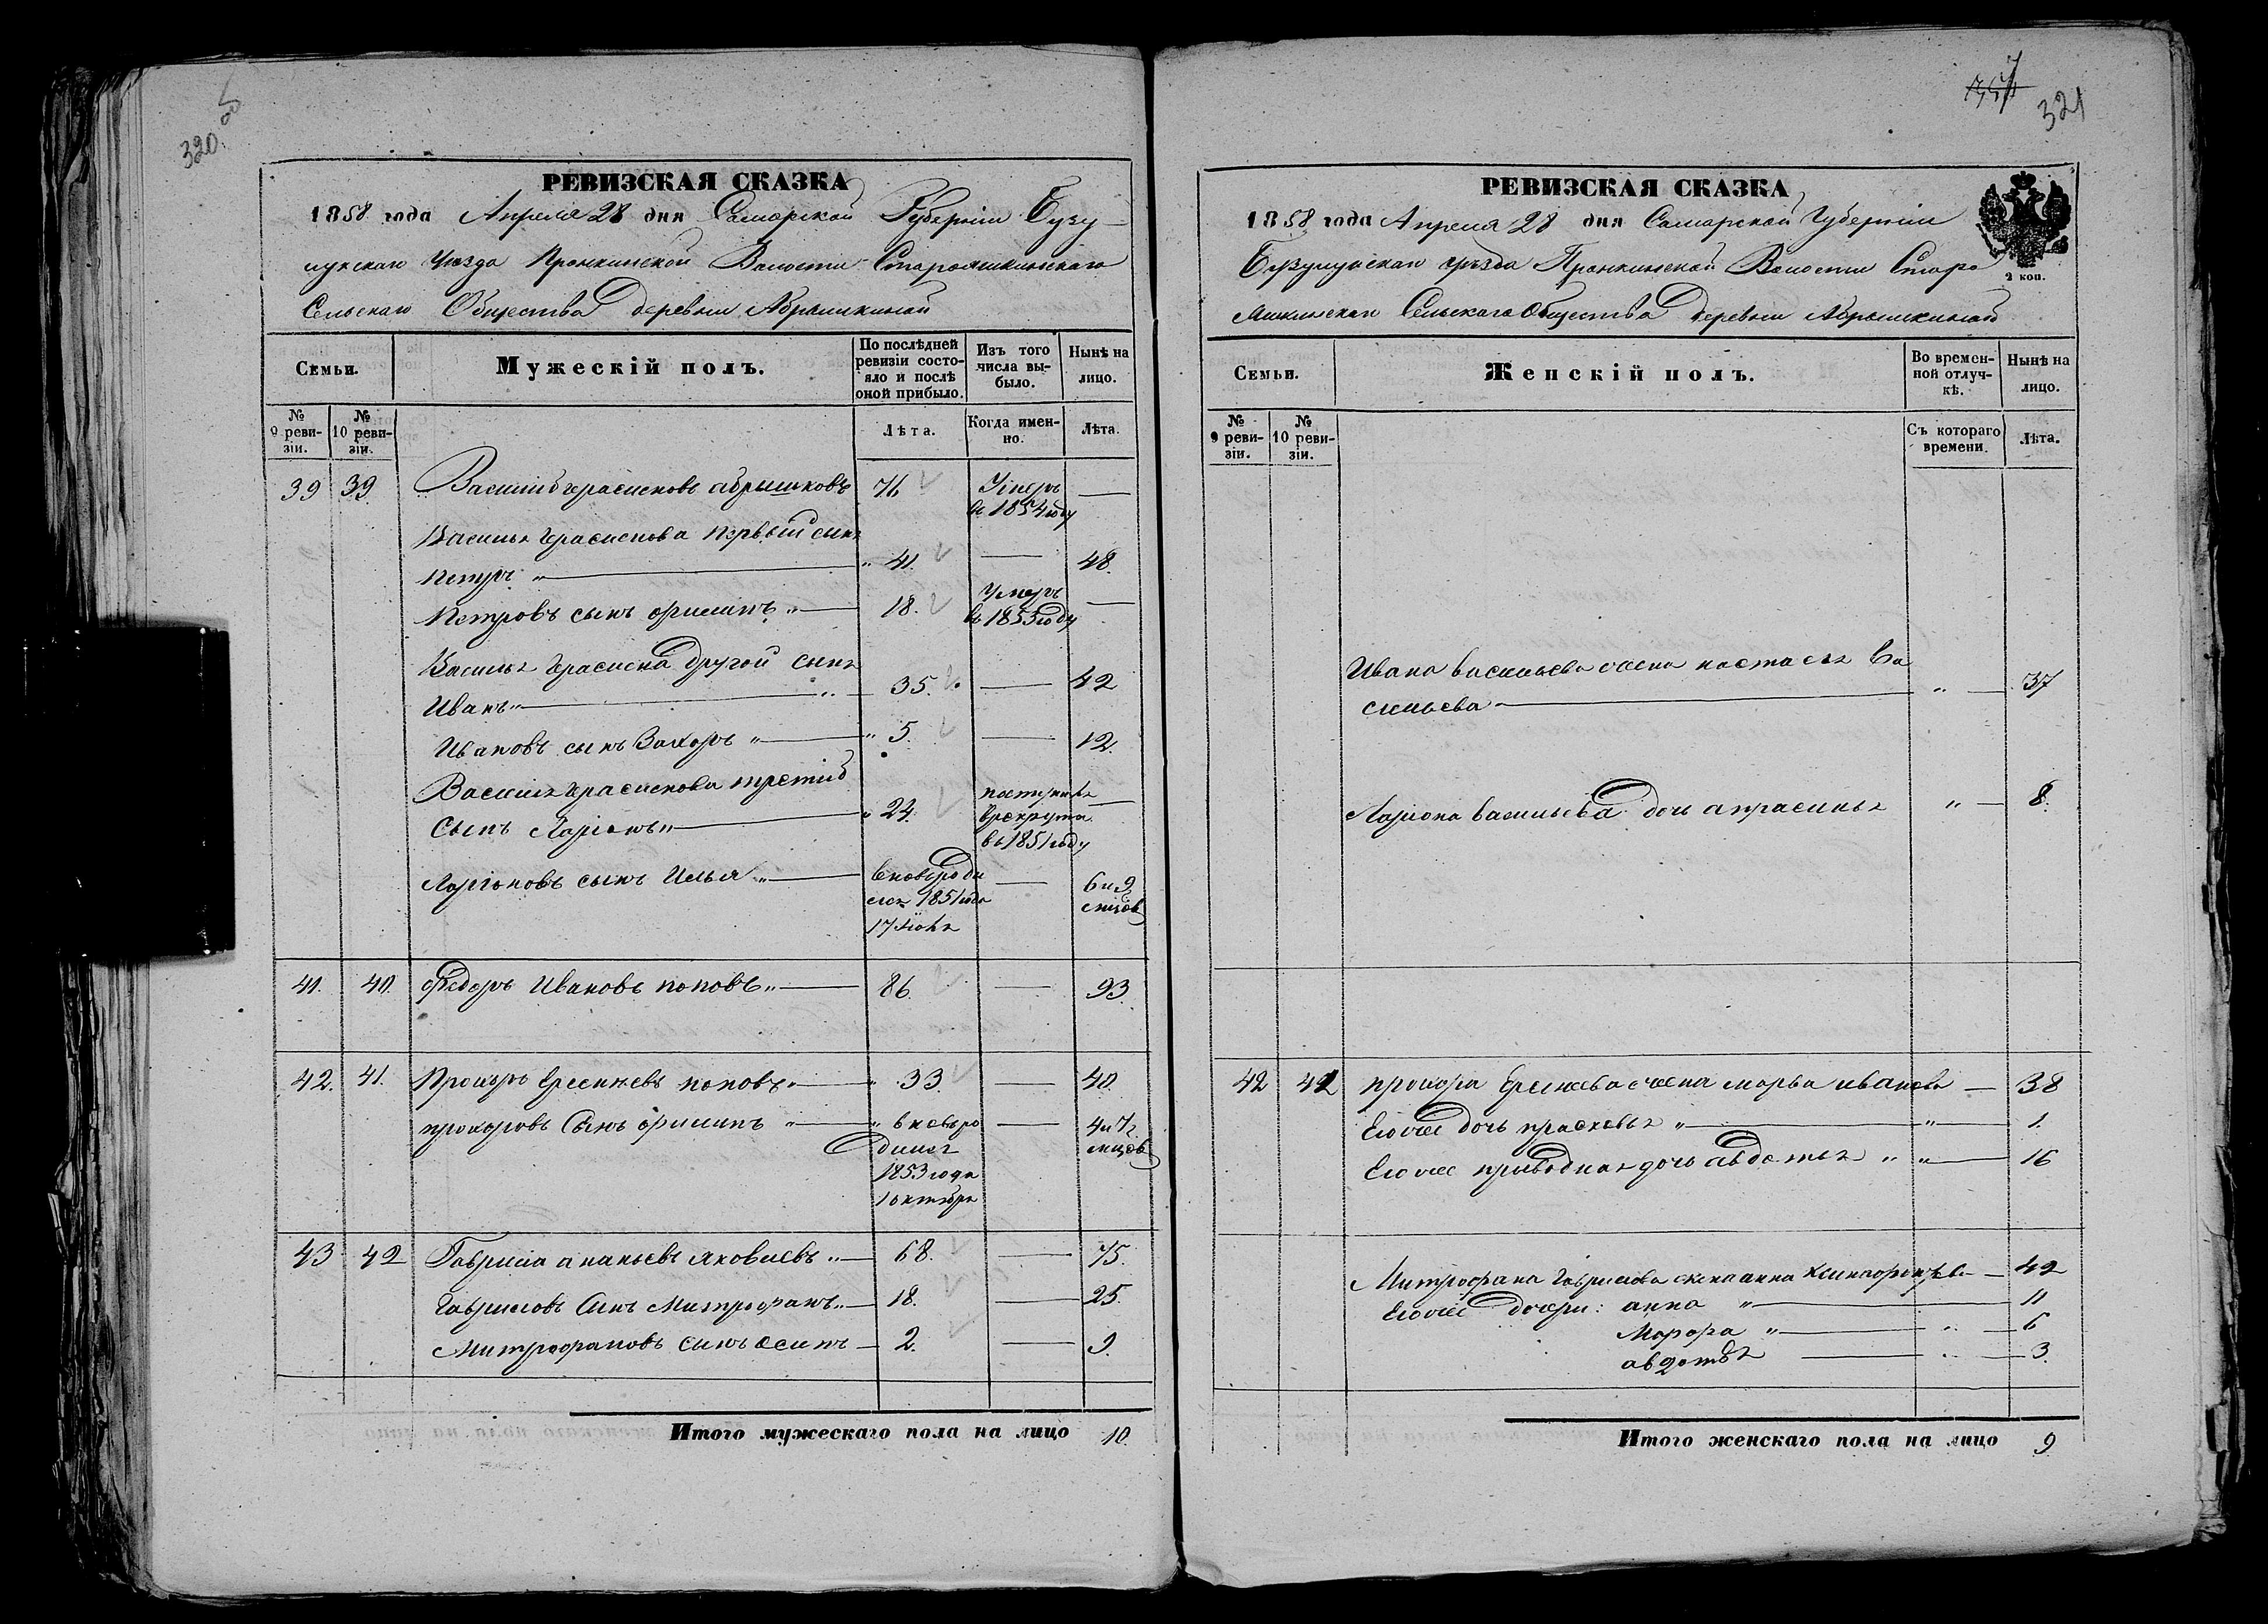 320
РЕВИЗСКАЯ СКАЗКА
1858 года Апреля 28 дня Самарской Губерніи Бузу-
лукскаго Уезда Пронькинской Волости Старояшкинскаго
Сельскаго Общества деревни Абрышкиной
Семьи.
Мужескій полъ.
По послѣдней ревизіи состояло и послѣ оной прибыло.
Изъ того числа выбыло.
Нынѣ на лицо.
№ 9 ревизіи.
№ 10 ревизіи.
Лѣта.
Когда именно.
Лѣта.
39 39 Василій герасимовъ абрышковъ 76 Умеръ —
въ 1854 году
Василья Герасимова первый сынъ
Петръ „ — „ 41. — 48.
Петровъ сынъ филипъ „ — 18. Умеръ —
въ 1853 году
Василья Герасима другой сынъ
Иванъ „ — 35. — 42
Ивановъ сынъ Захаръ „ — „ 5. — 12.
Василья герасимова третій
сынъ Ларіонъ „ — „ 24. поступилъ —
врекруты
въ 1851 году
Ларіоновъ сынъ Илья „ — вновероди — 6 и 9
лся 1851 года мцовъ
17 Іюля
41. 40. Федоръ Ивановъ поповъ „ — 86. — 93.
42. 41. Прохоръ поповъ „ — „ 33. — 40.
прохоровъ Сынъ филипъ „ — „ вновъро — 4 и 7
дился мцовъ
1853 года
1 октября
43 42 Гаврила ананьевъ яковлевъ „ — 68. — 75.
Гавриловъ Сынъ Митрофанъ „ — 18. — 25.
Митрофановъ сынъ осипъ — 2. — 9.
Итого мужескаго пола на лицо 10.
321
РЕВИЗСКАЯ СКАЗКА
1858 года Апреля 28 дня Самарской Губерніи
Бузулукскаго уезда Пронькинской Волости Старо
яшкинскаго Сельскаго Общества деревни Абрышкиной
2 коп.
Семьи.
Женскій полъ.
Во временной отлучкѣ.
Нынѣ на лицо.
№ 9 ревизіи.
№ 10 ревизіи.
Съ котораго времени.
Лѣта.
Ивана васильева жена настасья Ва
сильева — „ — 37
Лариона васильева дочь апрасинья „ — 8.
42 42 прохора жена марва иванова — 38
Еговже дочь прасковья „ — „ — 1.
Еговже приводная дочь авдотья „ „ — 16
Митрофана Гаврилова жена анна — 42
Еговже дочери: анна „ — 11
Марфа „ — „ — 6
авдотья — „ — 3.
Итого женскаго пола на лицо 9